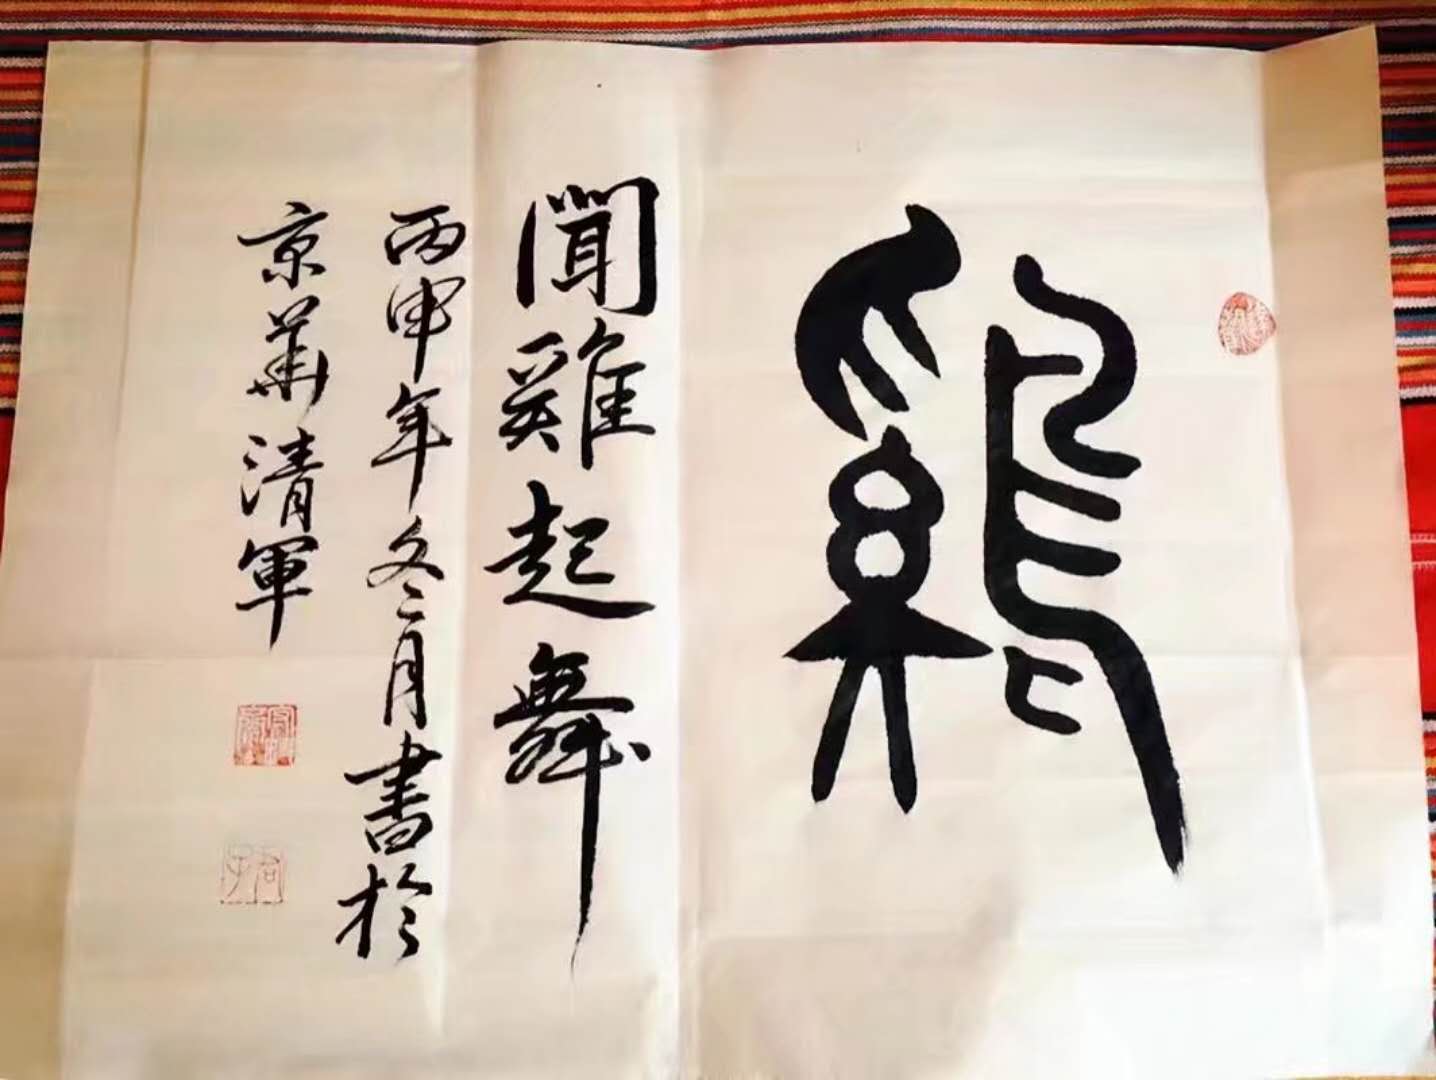 鷄
聞雞起舞
丙申年冬月書於
京華清軍
君子